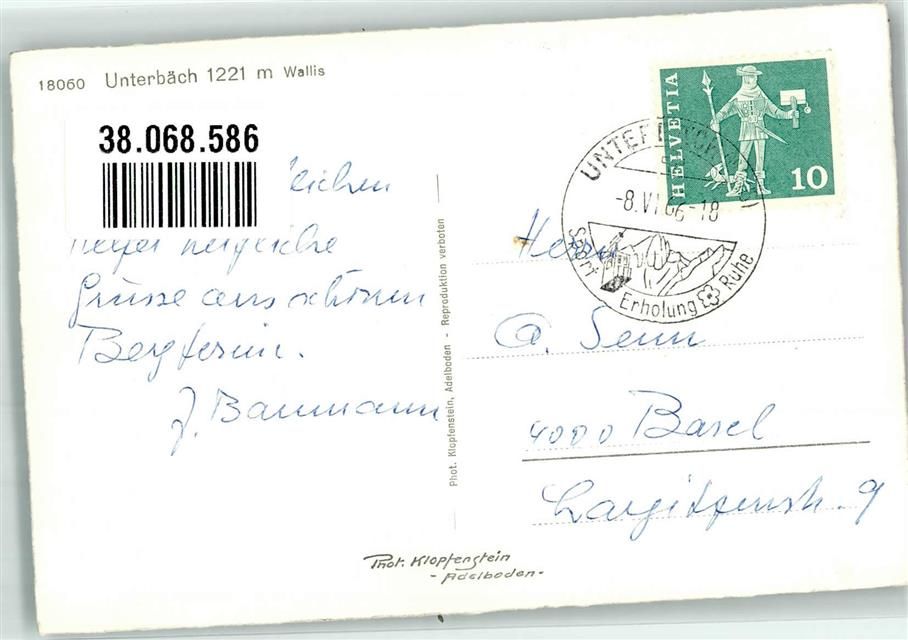 18060 Unterbäch 1221 m Wallis
38.068.586
herzliche
Grüsse aus schönen
Bergferien.
J. Baumann
Phot. Klopfenstein, Adelboden - Reproduktion verboten
HELVETIA
10
-8.VI.66-18
Sport Erholung Ruhe
Herrn
A. Senn
4000 Basel
Largitzenstr. 9
Phot. Klopfenstein
- Adelboden -